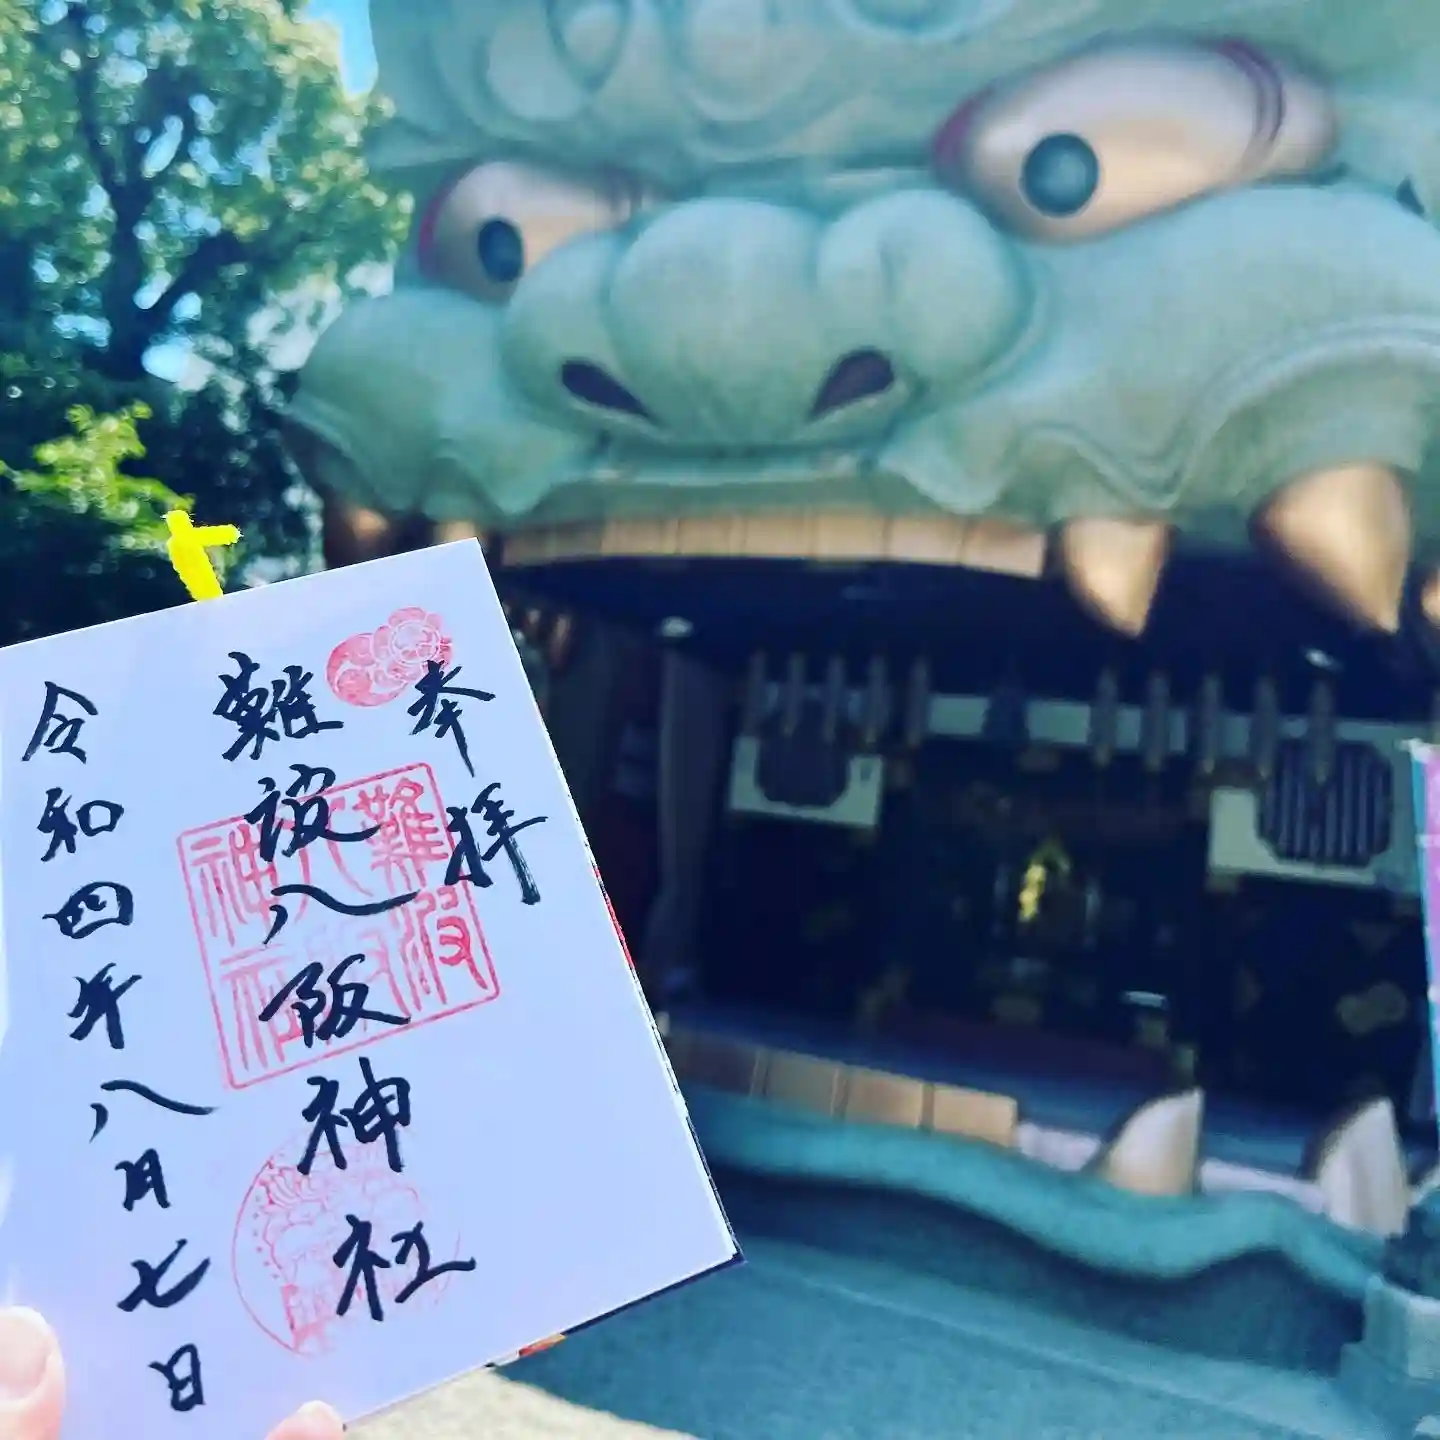 奉拝
難波八阪神社
令和四年八月七日
難波
八阪
神社